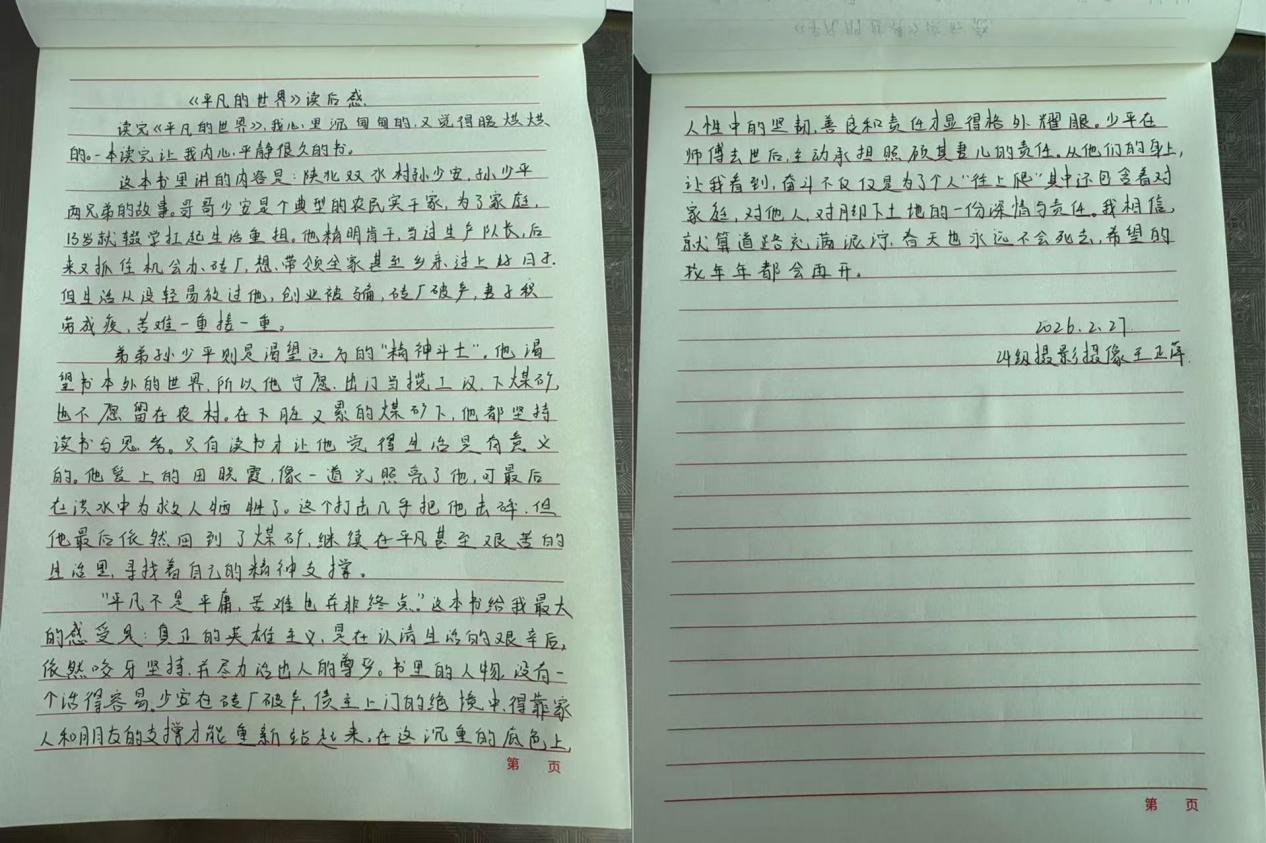 《平凡的世界》读后感.
读完《平凡的世界》,我心里沉甸甸的,又觉得暖烘烘
的。一本读完让我内心平静很久的书。
这本书里讲的内容是:陕北双水村孙少安,孙少平
两兄弟的故事。哥哥少安是个典型的农民实干家,为了家庭,
13岁就辍学扛起生活重担。他精明肯干,当过生产队长,后
来又抓住机会办砖厂,想带领全家甚至乡亲过上好日子.
但生活从没轻易放过他,创业被骗,砖厂破产,妻子积
劳成疾,苦难一重接一重。
弟弟孙少平则是渴望远方的"精神斗士"。他渴
望书本外的世界,所以他宁愿出门当揽工汉,下煤矿,
也不愿留在农村。在又脏又累的煤矿下,他都坚持
读书与思考。只有读书才让他觉得生活是有意义
的。他爱上的田晓霞,像一道光照亮了他,可最后
在洪水中为救人牺牲了。这个打击几乎把他击碎.但
他最后依然回到了煤矿,继续在平凡甚至艰苦的
生活里,寻找着自己的精神支撑。
"平凡不是平庸,苦难也并非终点。"这本书给我最大
的感受是:真正的英雄主义,是在认清生活的艰辛后,
依然咬牙坚持,并尽力活出人的尊严。书里的人物,没有一
个活得容易。少安在砖厂破产,债主上门的绝境中,得靠家
人和朋友的支撑才能重新站起来。在这沉重的底色上,
第 页
人性中的坚韧,善良和责任才显得格外耀眼。少平在
师傅去世后,主动承担照顾其妻儿的责任。从他们的身上,
让我看到,奋斗不仅仅是为了个人"往上爬"其中还包含着对
家庭,对他人,对脚下土地的一份深情与责任。我相信,
就算道路充满泥泞,春天也永远不会死去,希望的
花年年都会再开。
2026.2.27.
24级摄影摄像王正萍.
第 页